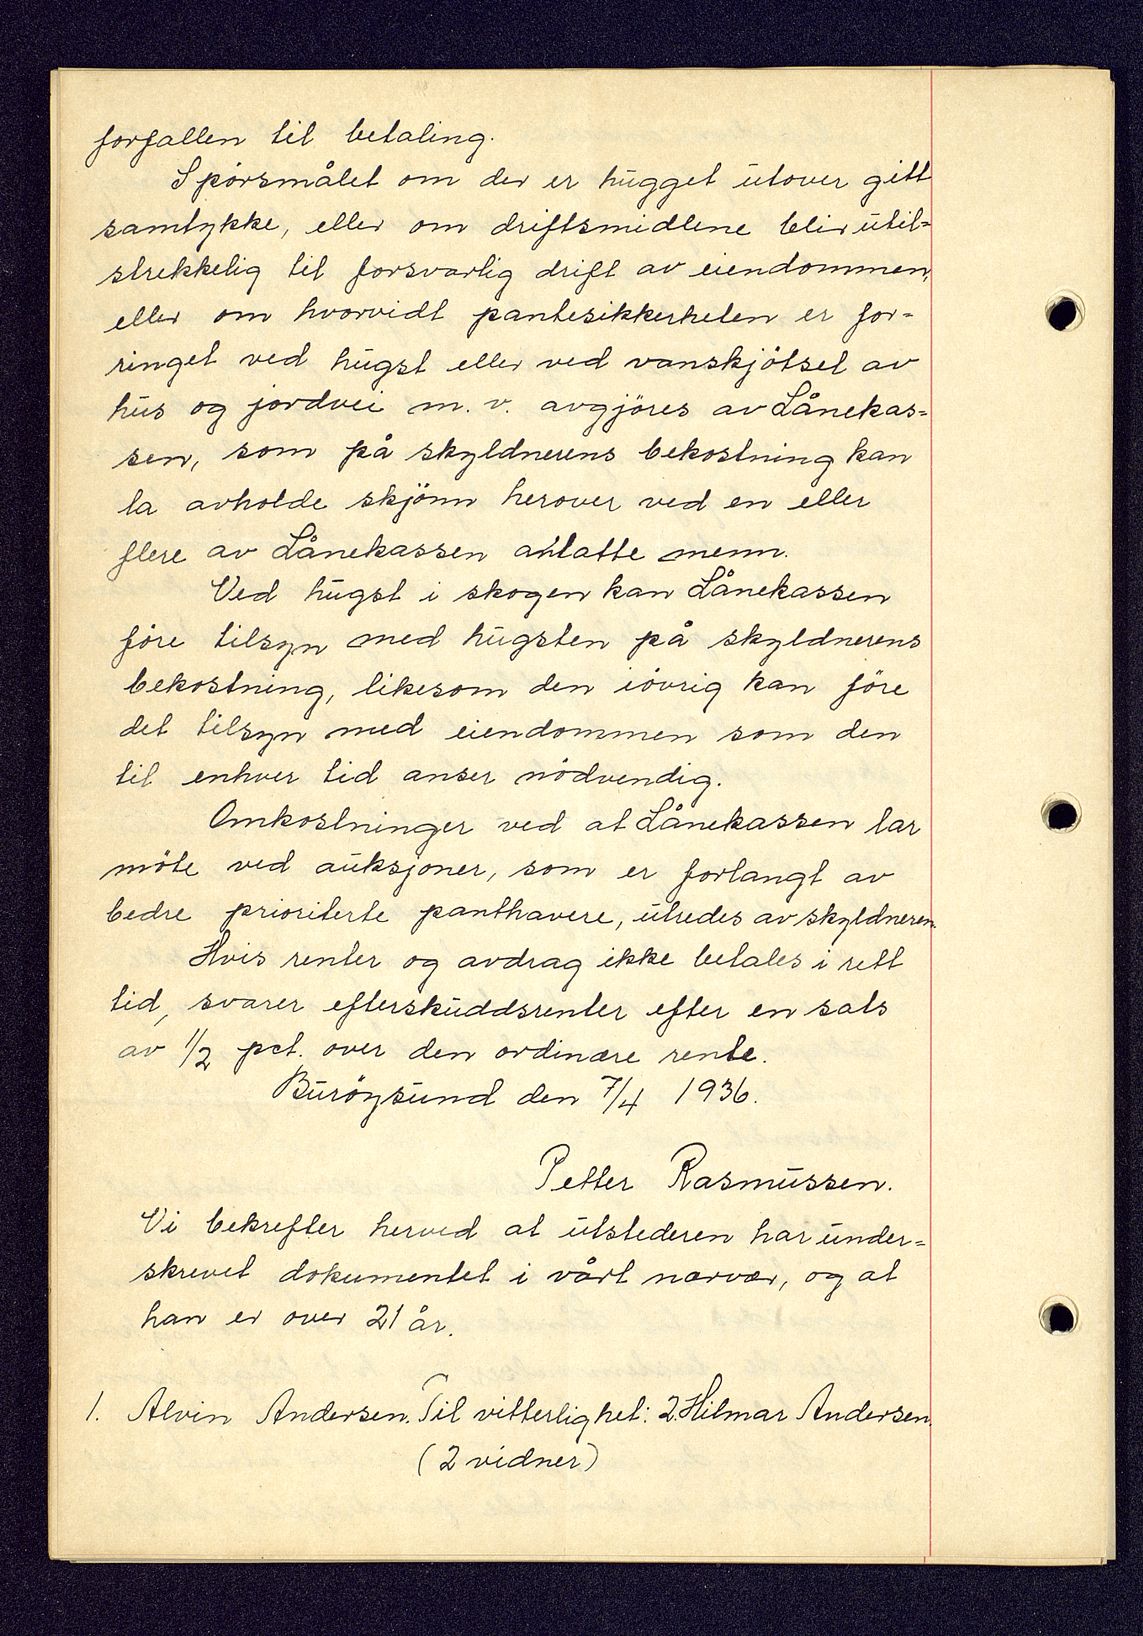 forfallen til betaling.
Spørsmålet om der er hugget utover gitt
samtykke, eller om driftsmidlene blir util=
strekkelig til forsvarlig drift av eiendommen,
eller om hvorvidt pantesikkerheten er for-
ringet ved hugst eller ved vanskjötsel av
hus og jordvei m. v. avgjöres av Lånekas=
sen, som på skyldnerens bekostning kan
la avholde skjönn herover ved en eller
flere av Lånekassen antatte menn.
Ved hugst i skogen kan Lånekassen
före tilsyn med hugsten på skyldnerens
bekostning, likesom den iövrig kan före
det tilsyn med eiendommen som den
til enhver tid anser nödvendig.
Omkostninger ved at Lånekassen lar
möte ved auksjoner, som er forlangt av
bedre prioriterte panthavere, utredes av skyldneren.
Hvis renter og avdrag ikke betales i rett
tid, svarer efterskuddsrenter efter en sats
av 1/2 pct. over den ordinære rente.
Buröysund den 7/4 1936.
Petter Rasmussen.
Vi bekrefter herved at utstederen har under=
skrevet dokumentet i vårt nærvær, og at
han er over 21 år.
1. Alvin Andersen. Til vitterlighet: 2. Hilmar Andersen.
(2 vidner)